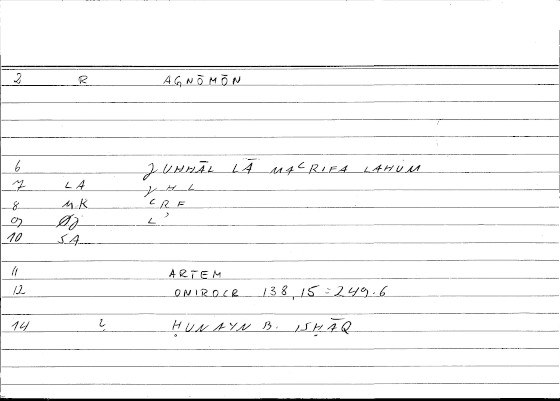 2 R AGNŌMŌN
6 ǦUHHĀL LĀ MAʿRIFA LAHUM
7 LA ǦHL
8 MK ʿRF
9 ØJ Lʾ
10 SA
11 ARTEM
12 ONIROCR 138,15=249.6
14 Ḥ HUNAYN B. ISḤĀQ